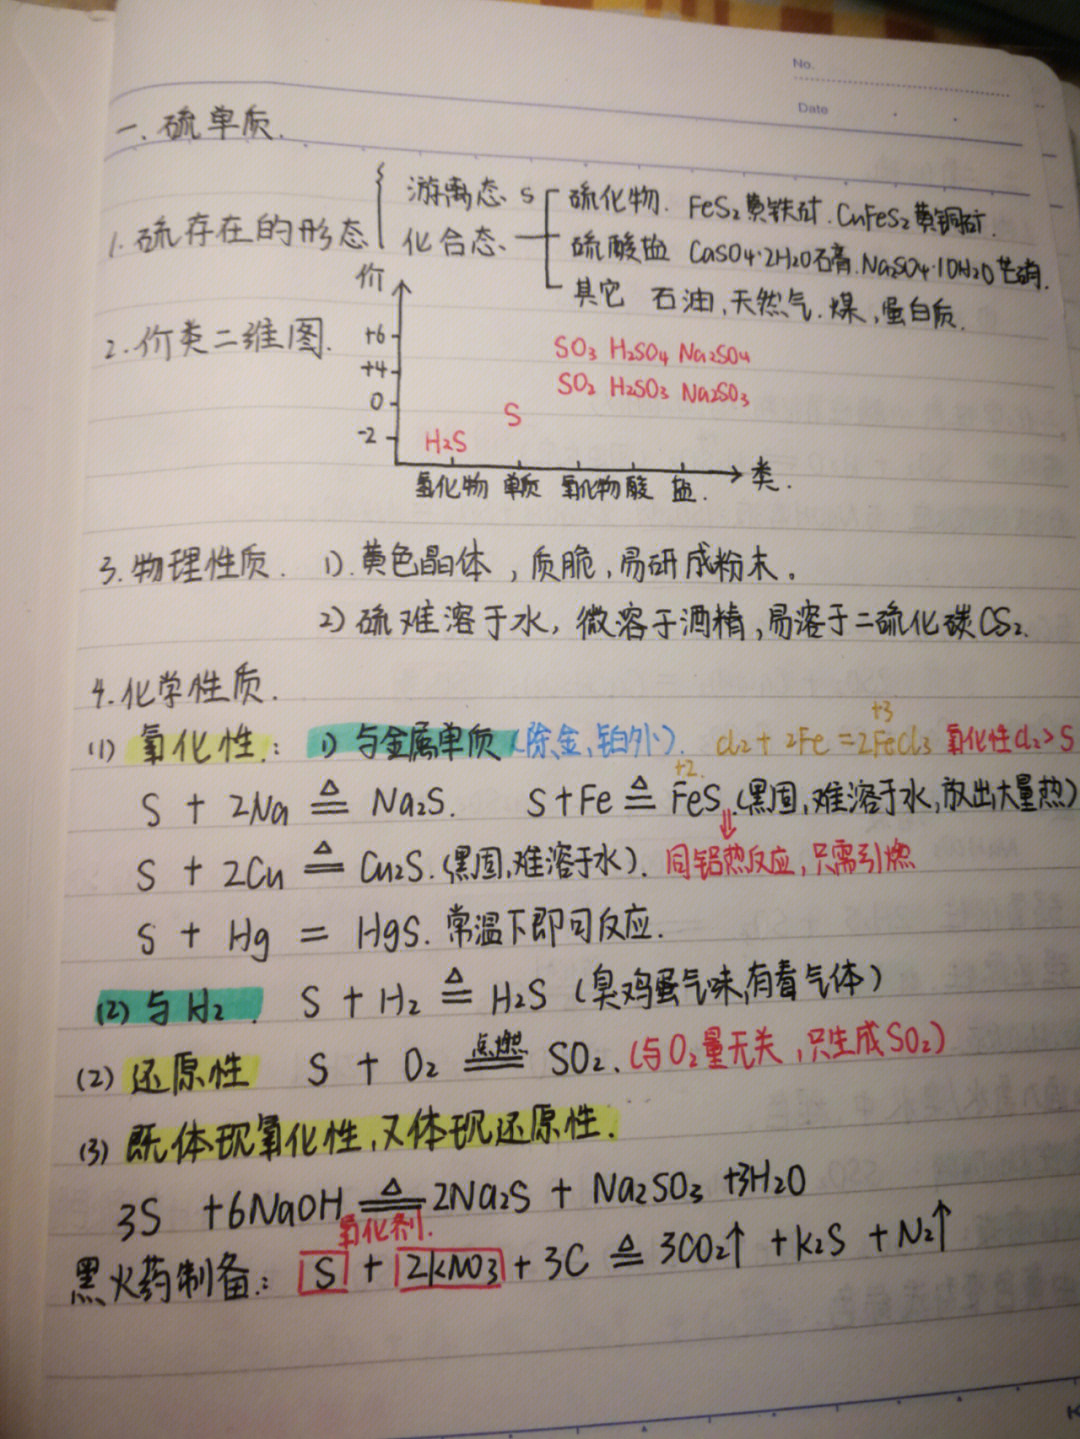 No.
Date
一. 硫单质.
1. 硫存在的形态 { 游离态 S
化合态.
硫化物. FeS₂黄铁矿. CuFeS₂黄铜矿.
硫酸盐 CaSO₄·2H₂O石膏. Na₂SO₄·10H₂O芒硝.
其它 石油,天然气.煤,蛋白质.
2. 价类二维图.
价
+6 SO₃ H₂SO₄ Na₂SO₄
+4 SO₂ H₂SO₃ Na₂SO₃
0 S
-2 H₂S
氢化物 单质 氧化物 酸 盐. 类.
3. 物理性质. 1). 黄色晶体,质脆,易研成粉末。
2) 硫难溶于水,微溶于酒精,易溶于二硫化碳CS₂.
4. 化学性质.
(1) 氧化性: 1) 与金属单质(除金,铂外). Cl₂+2Fe=2FeCl₃ 氧化性Cl₂>S
+3
+2.
S + 2Na ≜ Na₂S. S+Fe ≜ FeS.(黑固,难溶于水,放出大量热)
S + 2Cu ≜ Cu₂S.(黑固,难溶于水). 同铝热反应,只需引燃
S + Hg = HgS. 常温下即可反应.
(2) 与H₂. S + H₂ ≜ H₂S (臭鸡蛋气味,有毒气体)
(2) 还原性 S + O₂ 点燃 == SO₂. (与O₂量无关,只生成SO₂)
(3) 既体现氧化性,又体现还原性.
3S +6NaOH ≜ 2Na₂S + Na₂SO₃ +3H₂O
氧化剂.
黑火药制备: S + 2KNO₃ + 3C ≜ 3CO₂↑ +K₂S +N₂↑